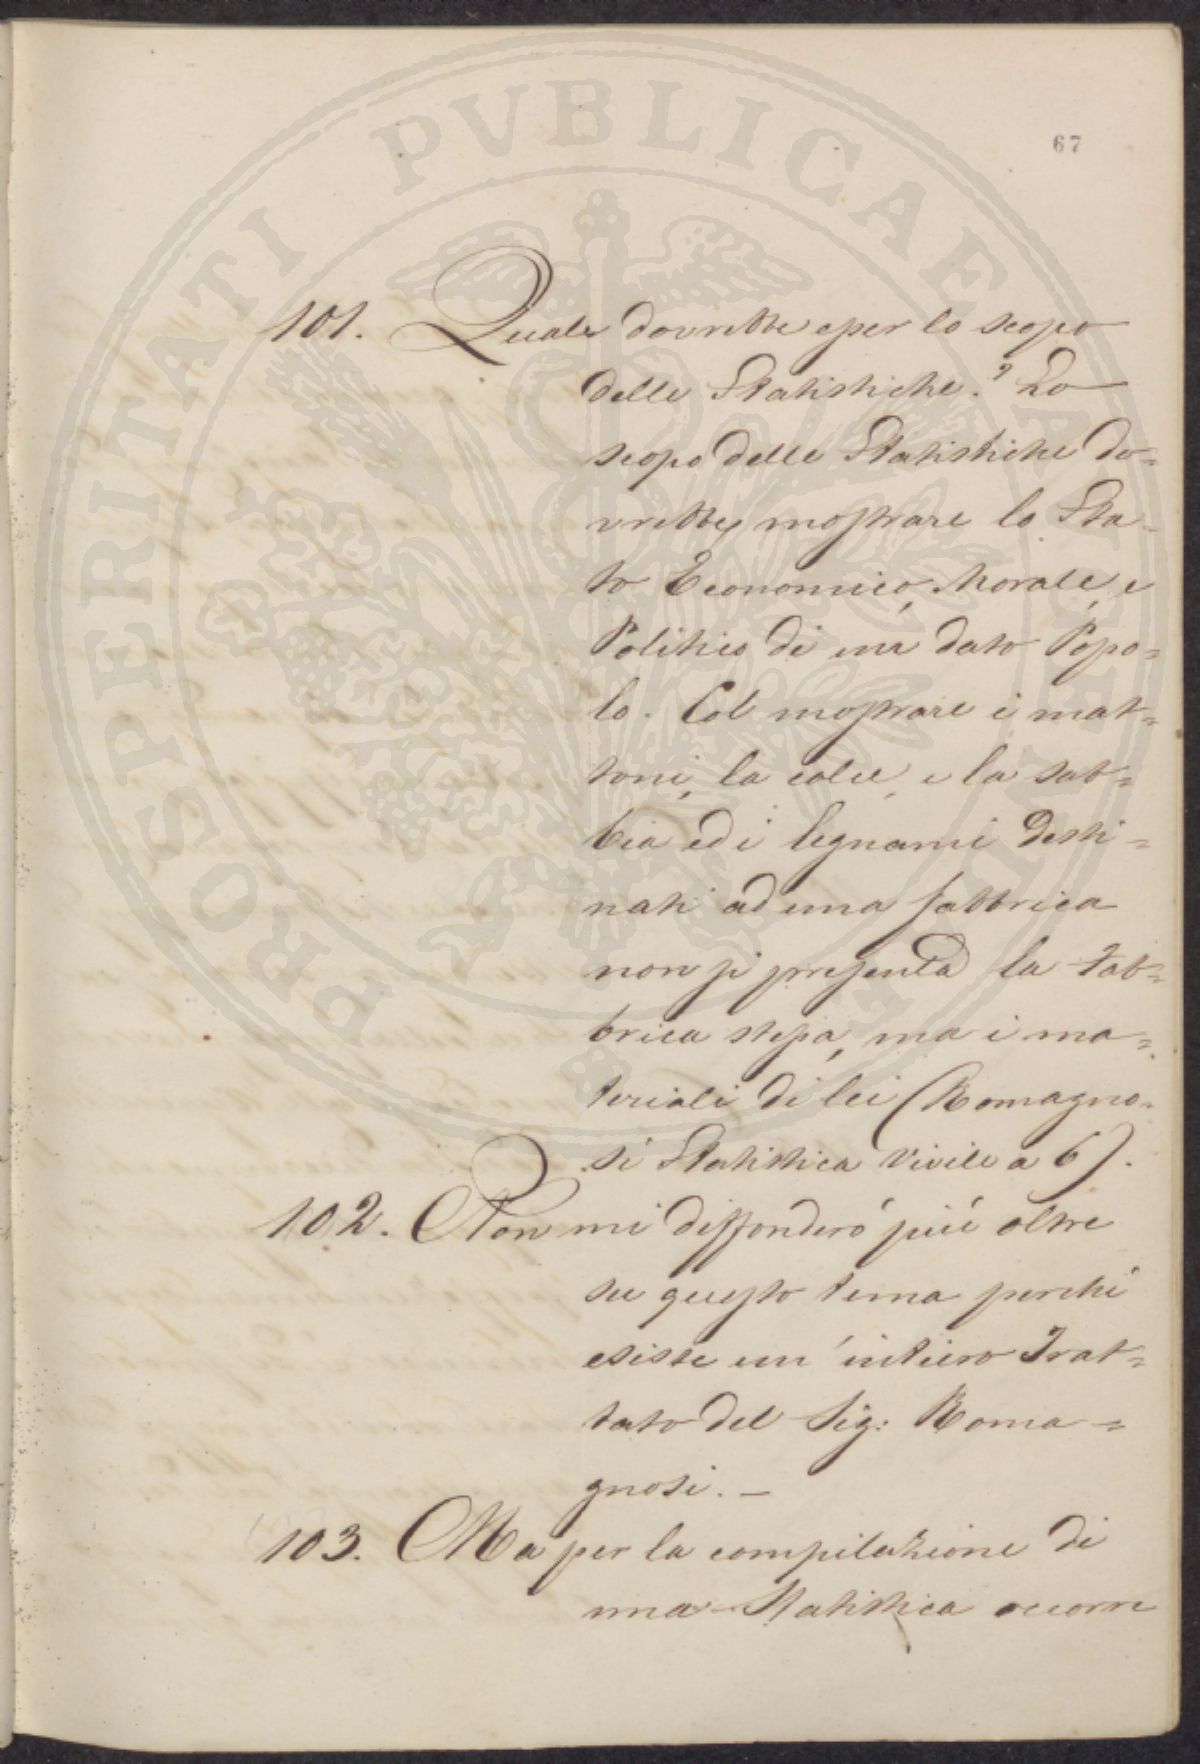 PROSPERITATI PVBLICAE
67
101. Quale dovrebbe esser lo scopo
delle Statistiche? Lo
scopo delle Statistiche do=
vrebbe, mostrare lo Sta=
to Economico, Morale, e
Politico di un dato Popo=
lo. Col mostrare i mat=
toni, la calce, e la sab=
bia ed i legnami desti=
nati ad una fabbrica
non si presenta la Fab=
brica stessa, ma i ma=
teriali di lei (Romagno=
si Statistica Civile a 6).
102. Non mi diffonderó piú oltre
su questo tema perché
esiste un' intiero Trat=
tato del Sig: Roma=
gnosi. —
103. Ma per la compilazione di
una Statistica occorre